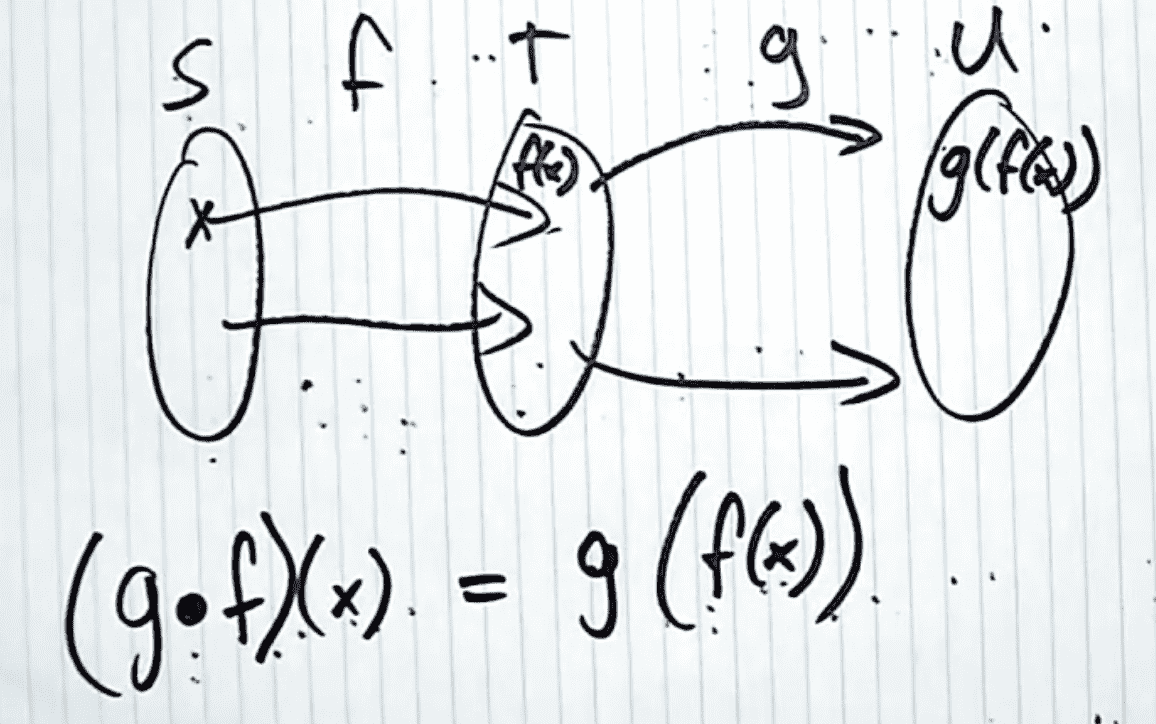 S f T g U
x f(x) g(f(x))
(g•f)(x) = g(f(x))